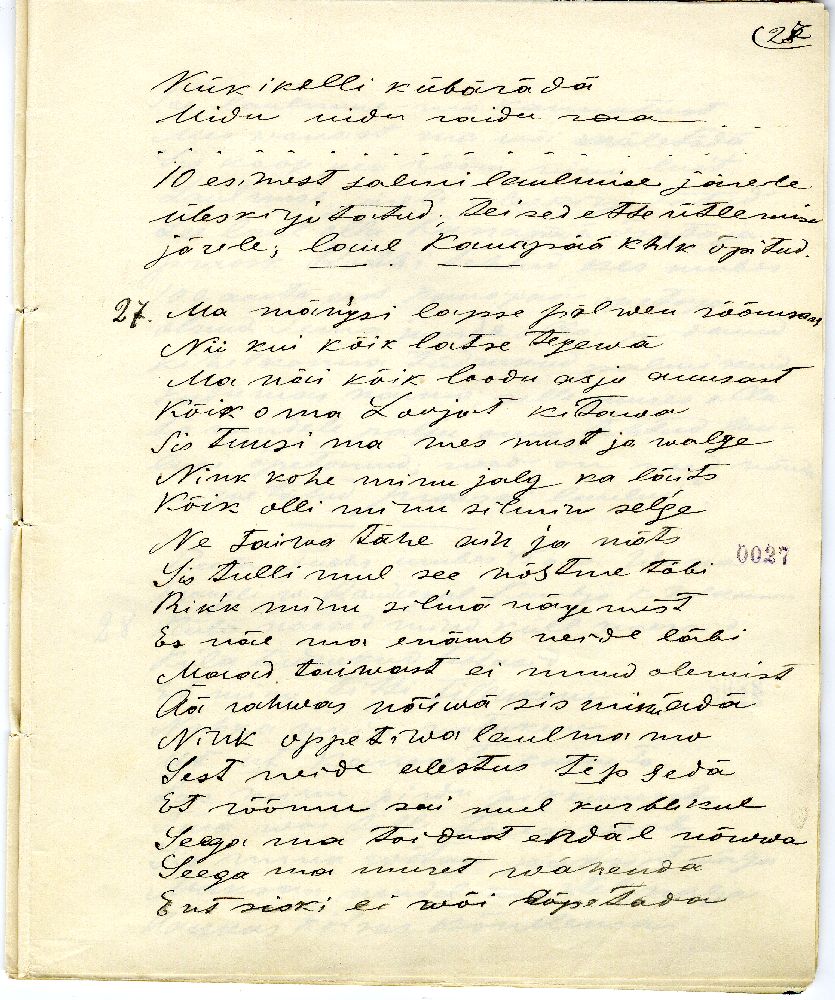 (27
Kiik ikelli kübärädä
Uidu uidu raidu raa
. . . . . . . . . . . . . .
10 esimest salmi laulmise järele
üleskirjutatud; teised ette ütlemise
järele; laul Kanapää khlk õpitud.
27. Ma mängsi lapse põlwen rõõmsas
Nii kui kõik latse tegewä
Ma näi kõik loodu asja auusast
Kõik oma Loojat kitawa
Sis tunsi ma mes must ja walge
Nink kohe minu jalg ka läits
Kõik olli minu silmin selge
Ne taiwa tähe nink ja näts
0027
Sis tulli mul see nõstme tõbi
Rikk minu silmä nägemist
Es näe ma enämb neide läbi
Maad taiwast ei muud olemist
Ää rahwas näiwä sis mino hädä
Nink oppetiwa laulma mo
Sest neide alestus tep sedä
Et rõõmu sai mul kurblikul
Seega ma toidust endäl nõwwa
Seega ma muret wähendä
Ent siski ei wõi lõpetada